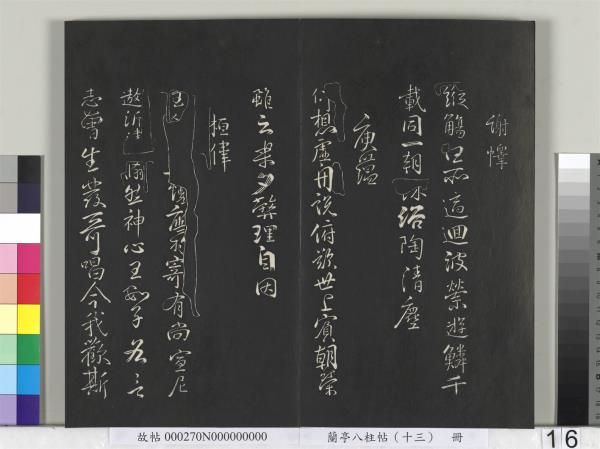 謝懌
縱觴任所適迴波縈遊鱗千
載同一朝沐浴陶清塵
庾蘊
仰想虛舟說俯歎世上賓朝榮
雖云樂夕斃理自因
桓偉
主人懷應物寄有尚宣尼
遨沂津蕭然神心王數子各言
志曾生發奇唱今我歡斯
故帖 000270N000000000 蘭亭八柱帖（十三） 冊
16